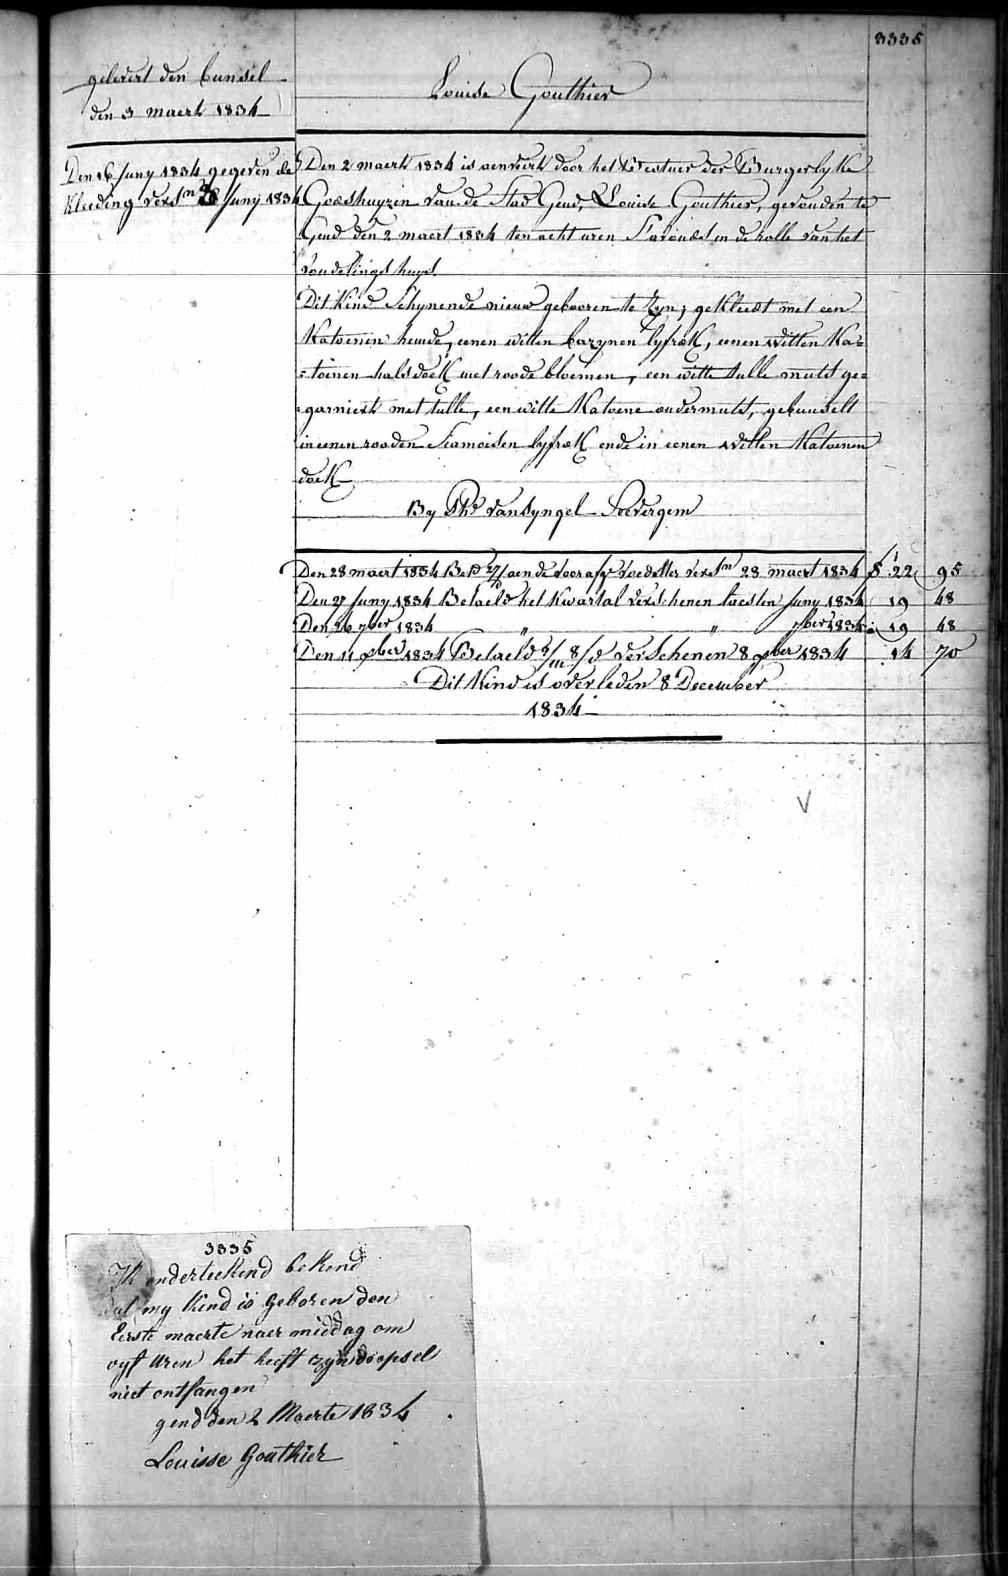 3335
gelevert den bunsel
den 3 maert 1834
Louise Gouthier
Den 16 Juny 1834 gegeven de
Kleeding versn 28 Juny 1834
Den 2 maerte 1834 is aenveirt door het Bestuer der Burgerlyke
Godshuyzen van de Stad Gend, Louise Gouthier, gevonden te
Gend den 2 maert 1834 ten acht uren S'avonds in de rolle van het
vondelings huys.
Dit Kind Schynende nieuw gebooren te zyn, gekleedt met een
Katoenen hemde, eenen witten bazynen lyfrok, eenen witten Ka=
=toenen halsdoek met roode bloemen, een witte tulle muts ge=
=garniert met tulle, een witte Katoene ondermuts, gebunselt
in eenen rooden Siamoisen lyfrok ende in eenen witten Katoenen
doek
By Phe vansyngel Seevergem
Den 28 maert 1834 Bet. aen de voorafge voedster versn 28 maert 1834 f 22 95
Den 27 Juny 1834 Betaeld het kwartal verschenen twesten Juny 1834 19 48
Den 26 7ber 1834 " " 7ber 1834 19 48
Den 11 9ber 1834 Betaeld 2/m 8/d verschenen 8 9ber 1834 14 70
Dit Kind is overleden 8 December
1834
3335
Ik onderteekend bekend
dat my kind is geboren den
Eerste maerte naer middag om
vyf uren het heeft zyn doopsel
niet ontfangen
gend den 2 Maerte 1834
Louisse Gouthier